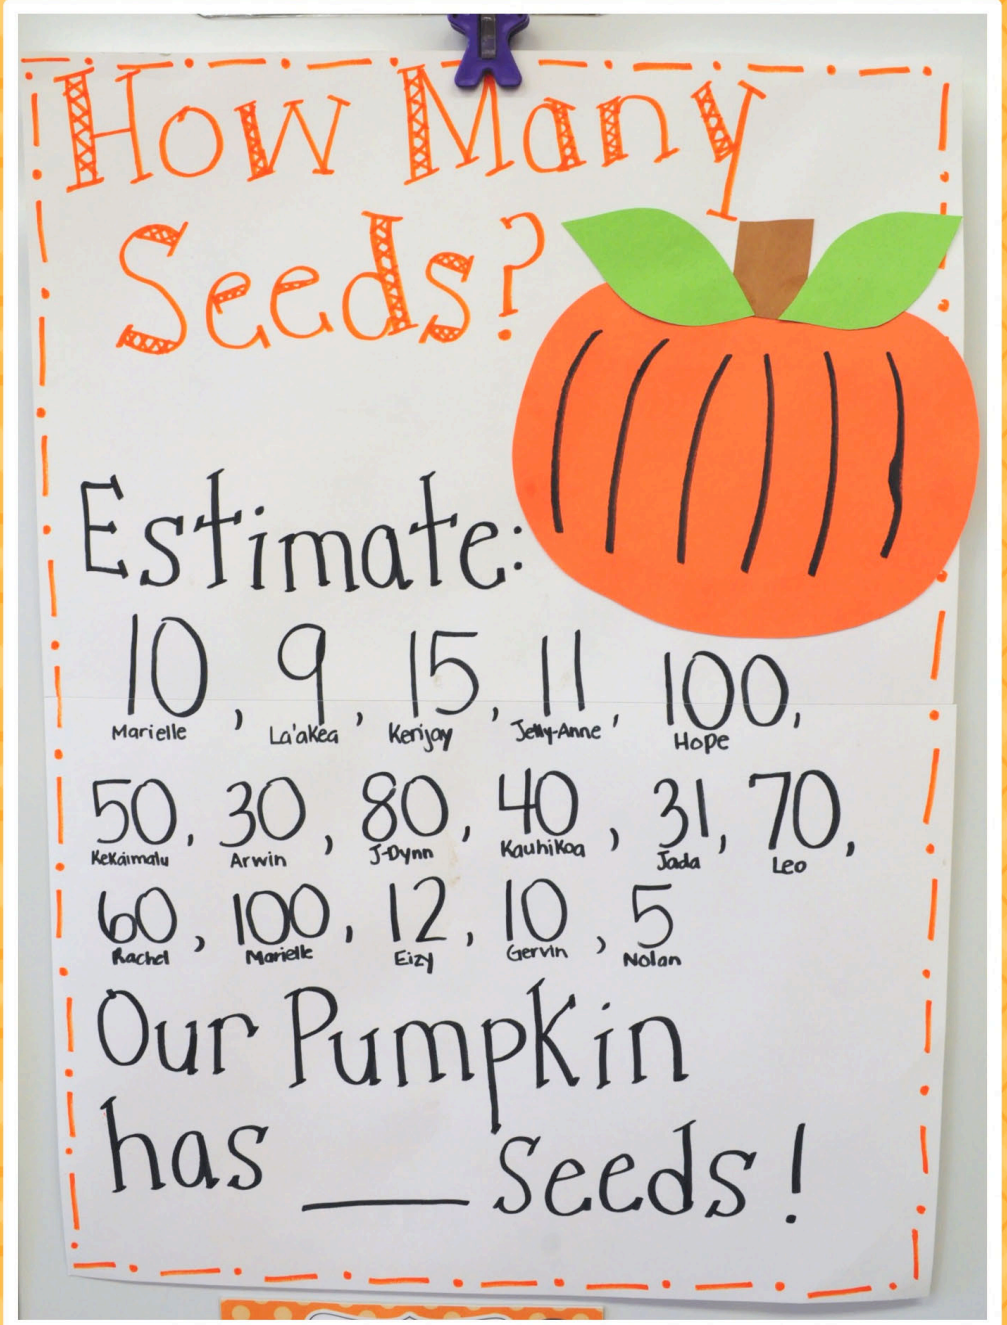 How Many
Seeds?
Estimate:
10, 9, 15, 11, 100,
Marielle La'akea Kerijay Jelly-Anne Hope
50, 30, 80, 40, 31, 70,
Kekaimalu Arwin J-Dynn Kauhikoa Jada Leo
60, 100, 12, 10, 5
Rachel Marielle Eizy Gervin Nolan
Our Pumpkin
has ___ Seeds!